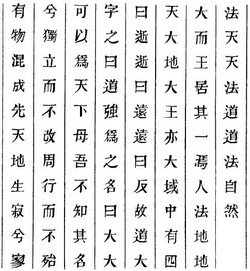 有物混成先天地生寂兮寥
兮獨立而不改周行而不殆
可以爲天下母吾不知其名
字之曰道強爲之名曰大大
曰逝逝曰遠遠曰反故道大
天大地大王亦大域中有四
大而王居其一焉人法地地
法天天法道道法自然